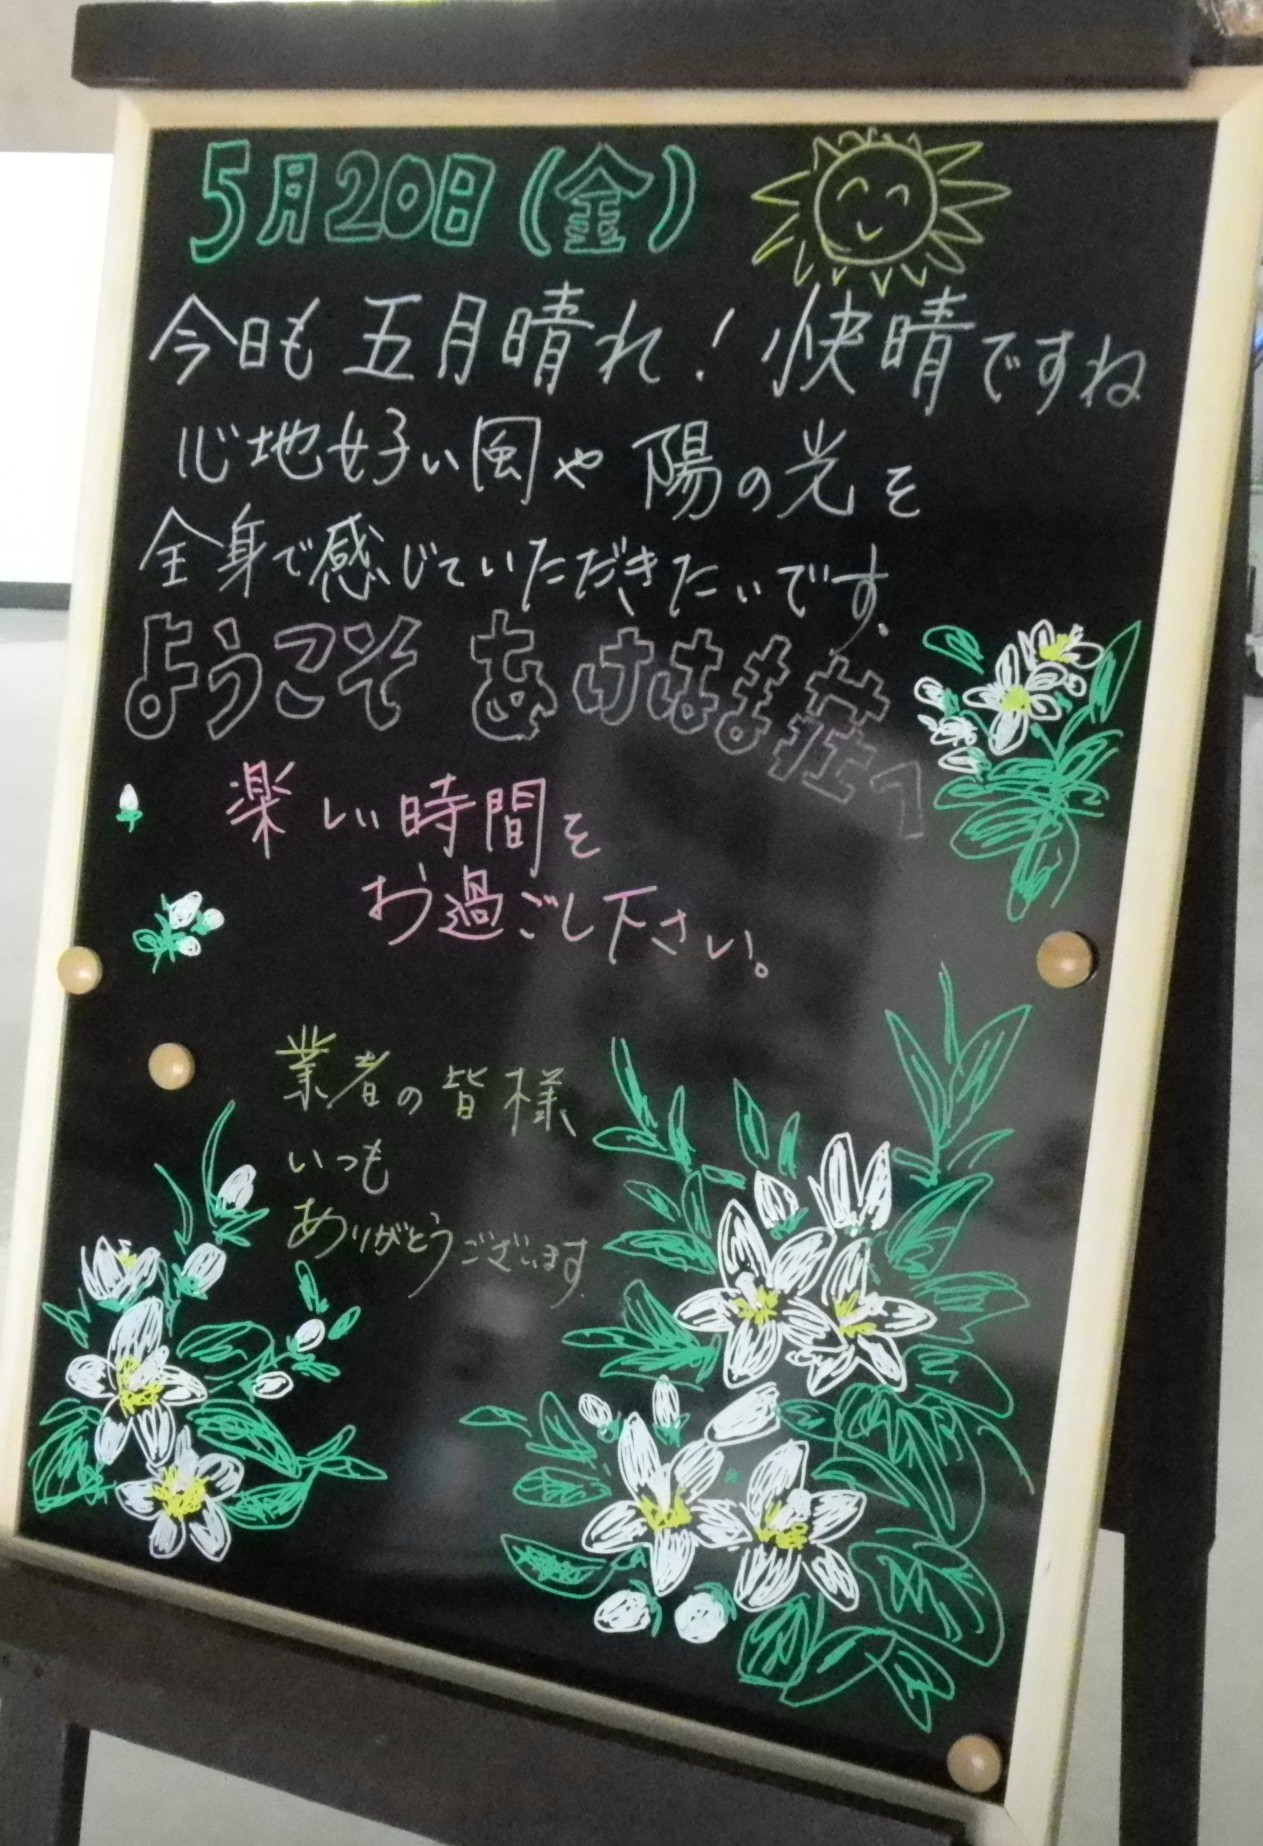 5月20日(金)
今日も五月晴れ!快晴ですね
心地好い風や陽の光を
全身で感じていただきたいです.
ようこそ あけはま荘へ
楽しい時間を
お過ごし下さい。
業者の皆様
いつも
ありがとうございます.